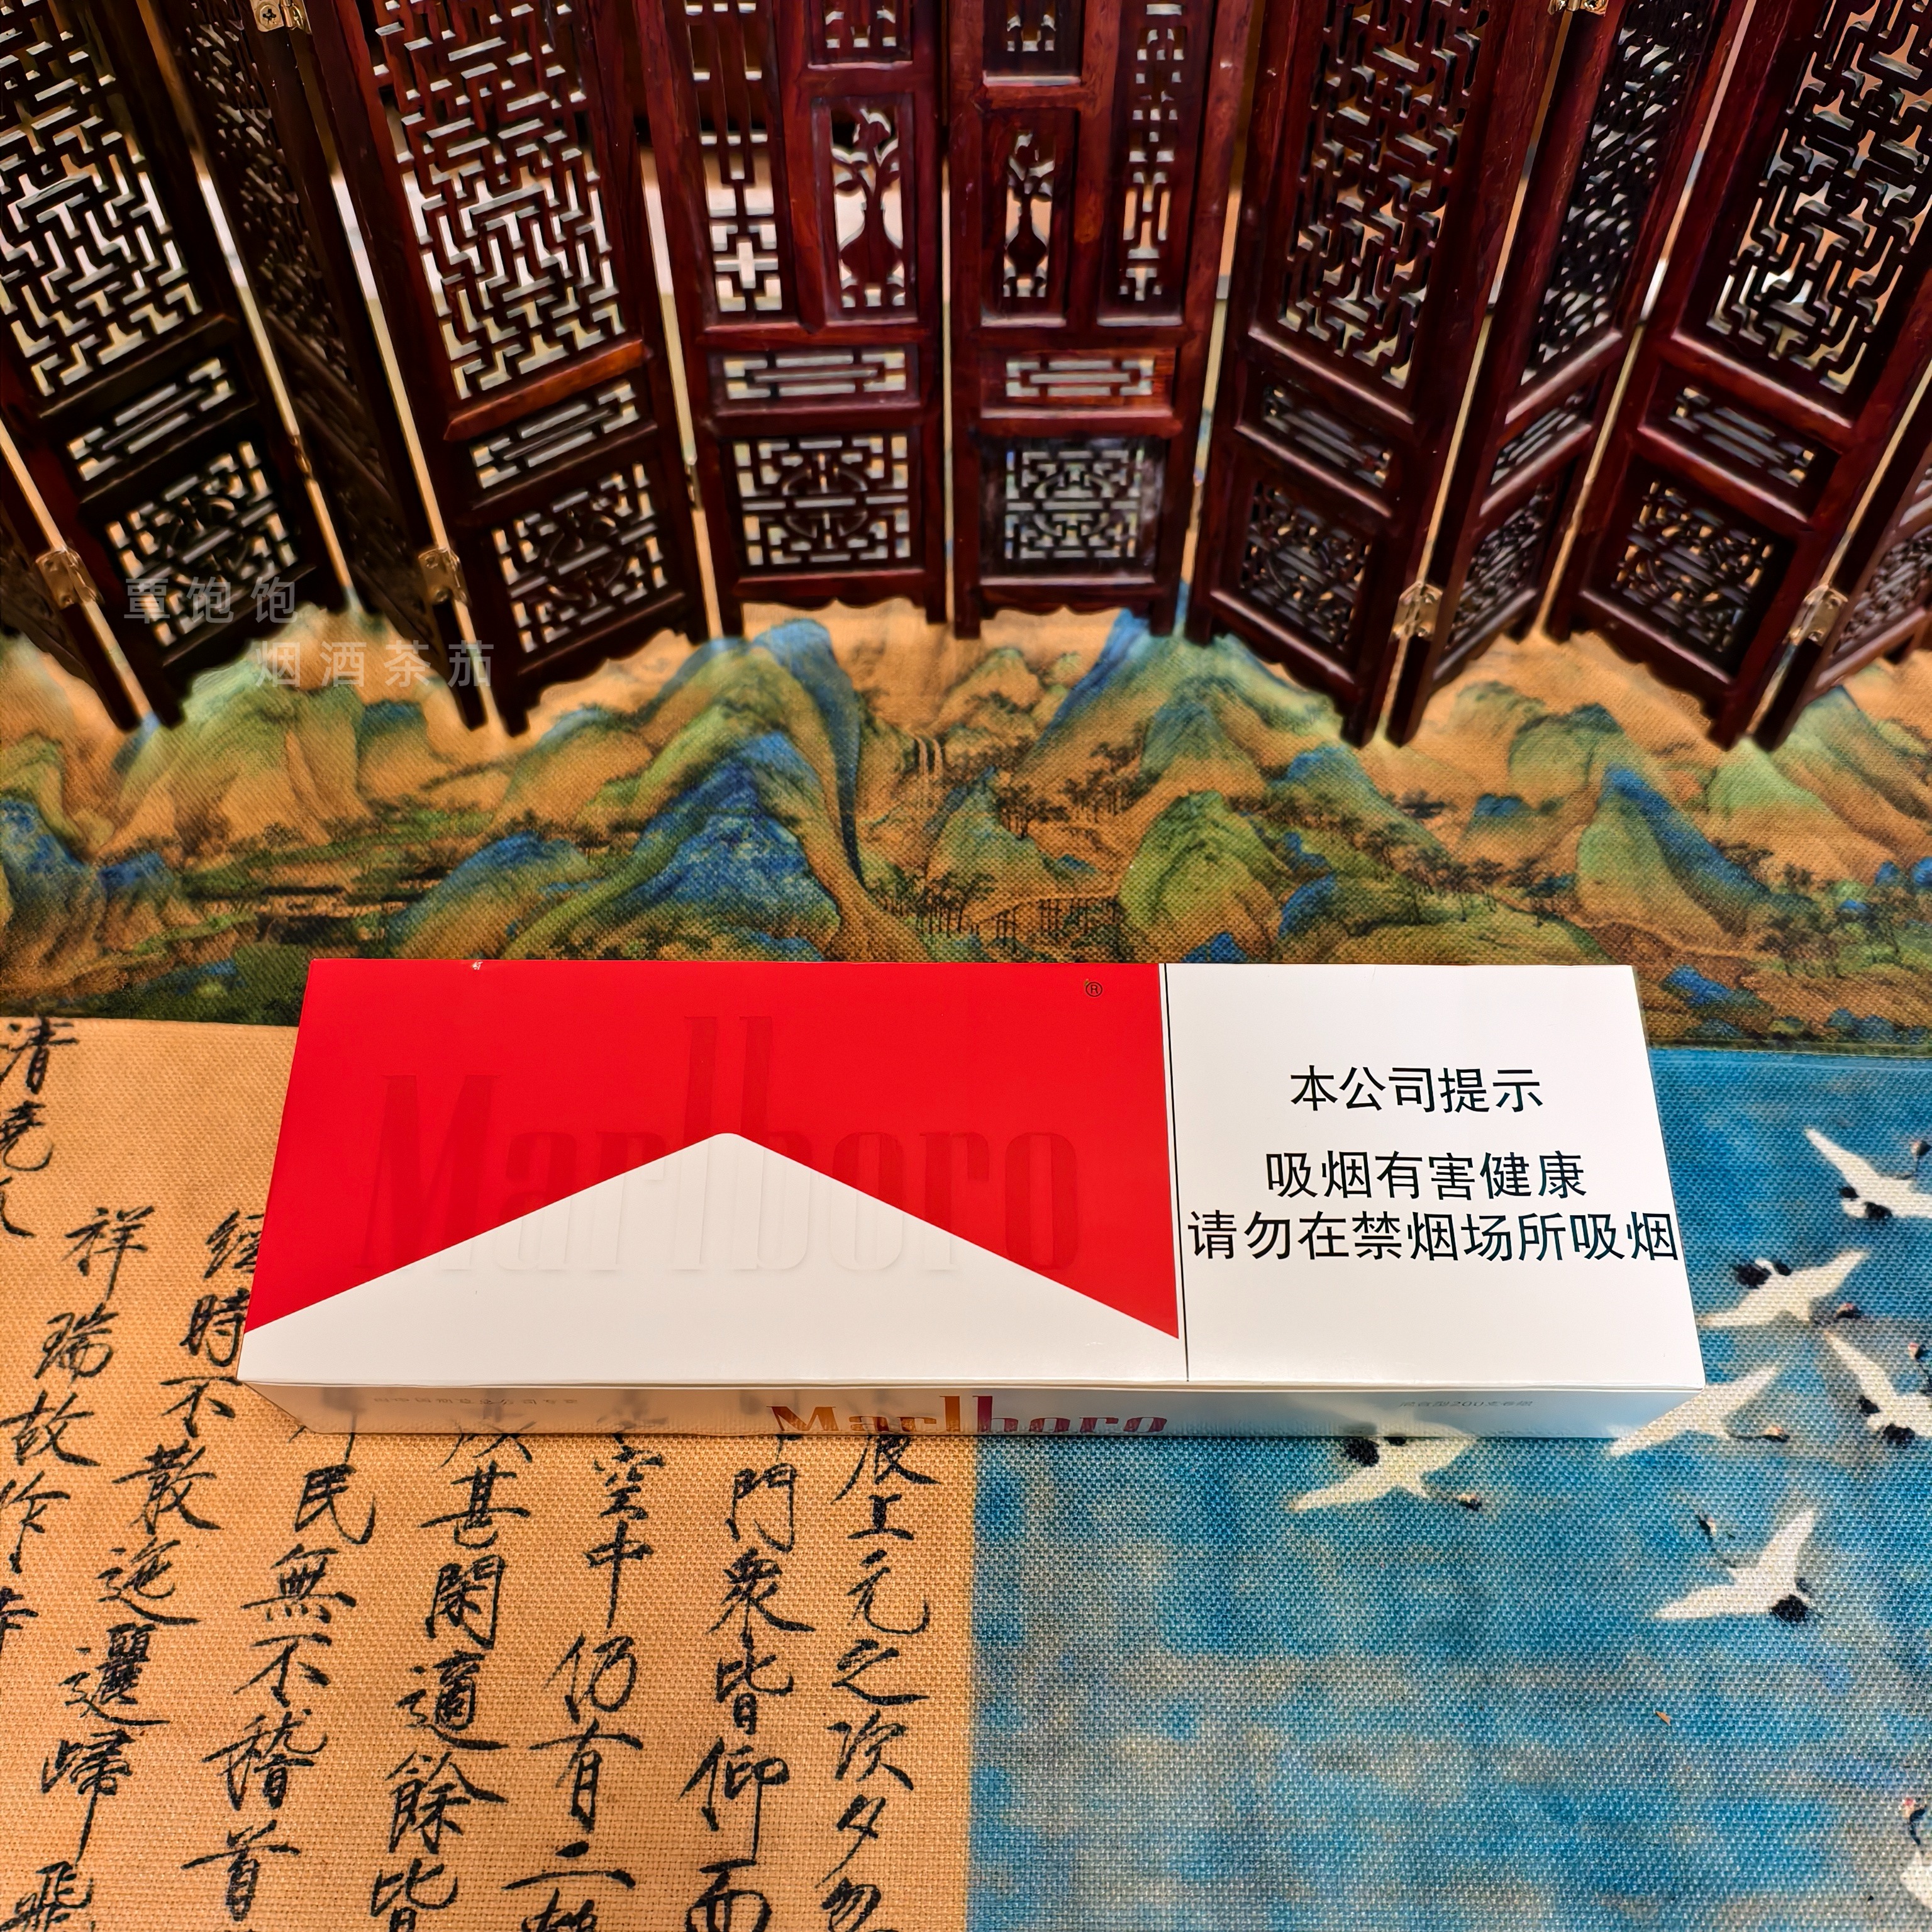 覃饱饱
烟酒茶茄
®
Marlboro
本公司提示
吸烟有害健康
请勿在禁烟场所吸烟
Marlboro
辰上元之次夕
門衆皆仰而
空中仍有二
甚閑適餘皆
民無不稽首
經時不散迤邐歸飛
祥瑞故作
清堯